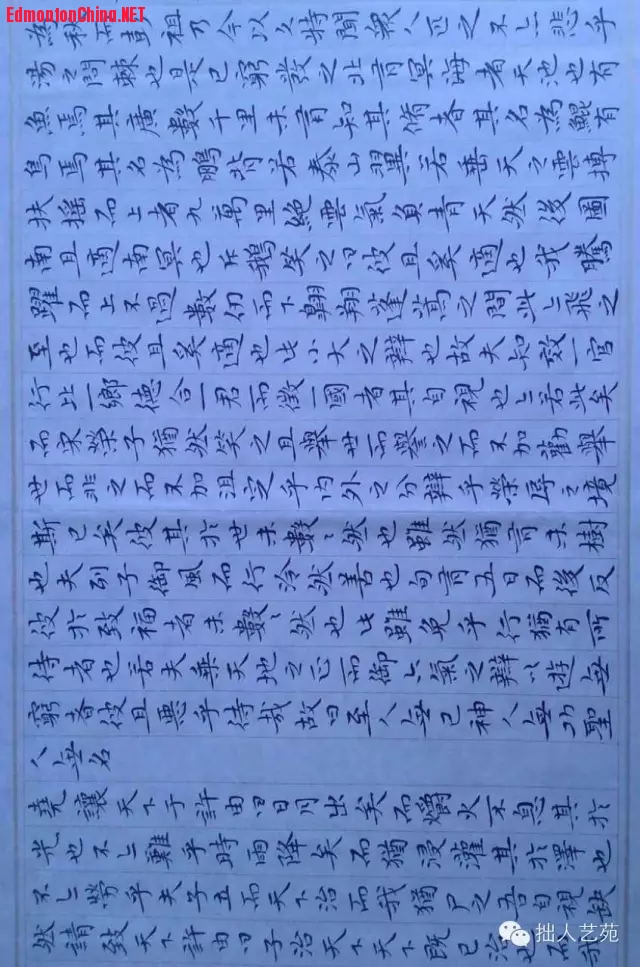 EdmontonChina.NET
為秋而彭祖乃今以久特聞眾人匹之不亦悲乎
湯之問棘也是已窮髮之北有冥海者天池也有
魚焉其廣數千里未有知其脩者其名為鯤有
鳥焉其名為鵬背若泰山翼若垂天之雲搏
扶搖而上者九萬里絕雲氣負青天然後圖
南且適南冥也斥鴳笑之曰彼且奚適也我騰
躍而上不過數仞而下翱翔蓬蒿之間此亦飛之
至也而彼且奚適也此小大之辯也故夫知效一官
行比一鄉德合一君而徵一國者其自視也亦若此矣
而宋榮子猶然笑之且舉世而譽之而不加勸舉
世而非之而不加沮定乎內外之分辯乎榮辱之境
斯已矣彼其於世未數〻然也雖然猶有未樹
也夫列子御風而行泠然善也旬有五日而後反
彼於致福者未數〻然也此雖免乎行猶有所
待者也若夫乘天地之正而御六氣之辯以遊無
窮者彼且惡乎待哉故曰至人無己神人無功聖
人無名
堯讓天下于許由曰日月出矣而爝火不息其於
光也不亦難乎時雨降矣而猶浸灌其於澤也
不亦勞乎夫子立而天下治而我猶尸之吾自視缺
然請致天下許由曰子治天下天下既已治也而我
拙人艺苑